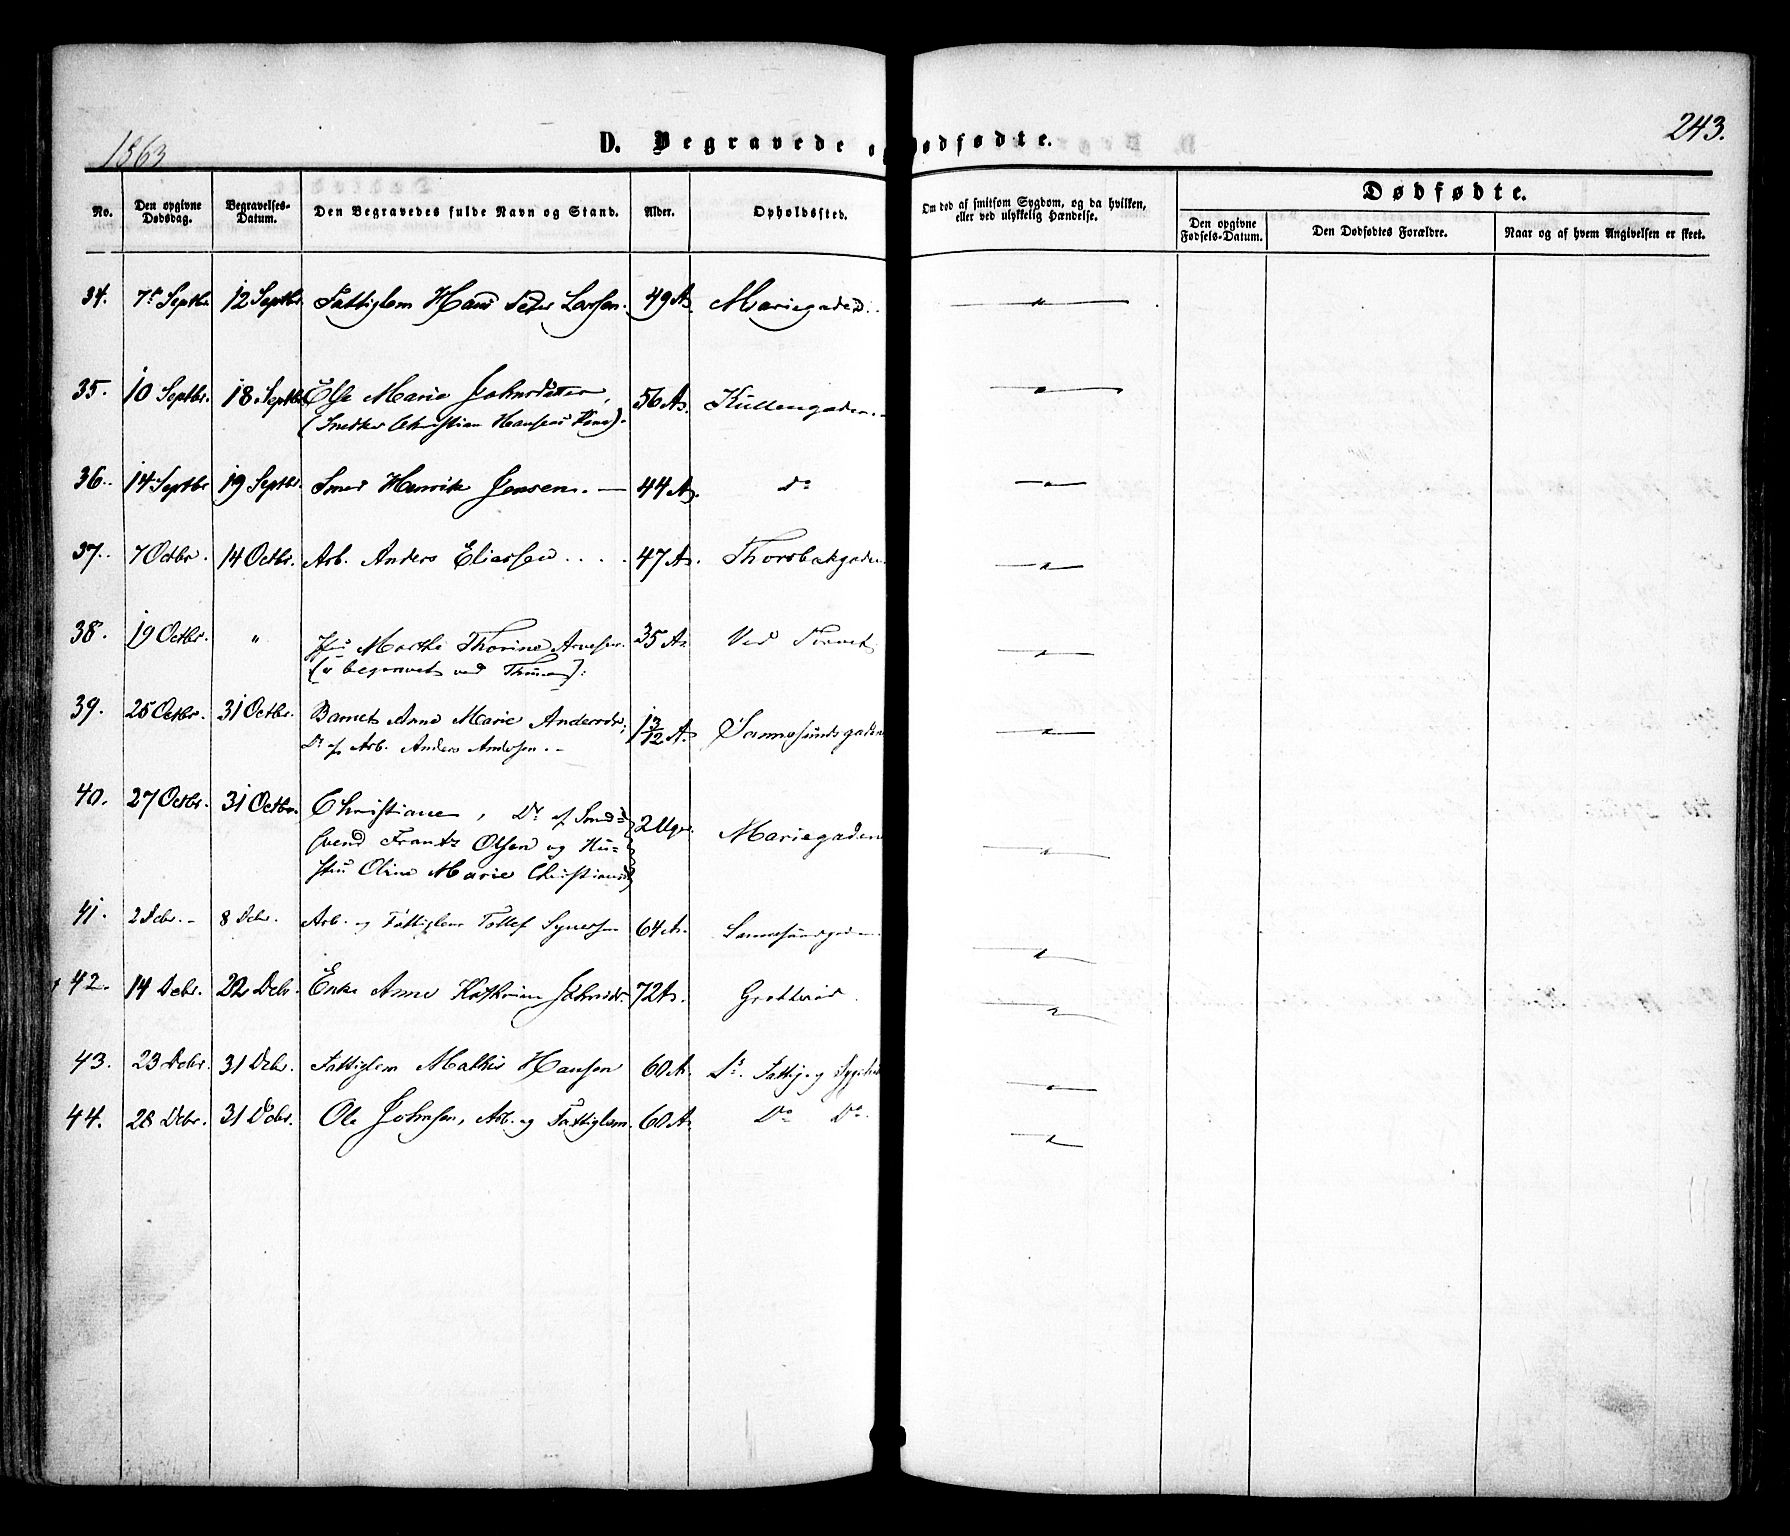 1863
D. Begravede og Dødfødte.
243.
No. Den opgivne Dødsdag. Begravelses-Datum. Den Begravedes fulde Navn og Stand. Alder. Opholdssted. Om død af smitsom Sygdom, og da hvilken, eller ved ulykkelig Hændelse.
Dødfødte.
Den opgivne Fødsels-Datum. Den Dødfødtes Forældre. Naar og af hvem Angivelsen er skeet.
34. 7d Septbr. 12 Septbr. Fattiglem Hans Peder Larsen. 49 A. Mariegaden. — " —
35. 10 Septbr. 18 Septbr. Else Marie Johnsdatter, 56 A. Kullengaden. — " —
(Snedker Christian Hansens Kone).
36. 14 Septbr 19 Septbr. Smed Henrik Jensen. — 44 A. Do — " —
37. 7 Octbr. 14 Octbr. Arb. Anders Eliassen . . . . 47 A. Thorsbakgaden — " —
38. 19 Octbr. " Marthe Thorine Arvesen. 35 A. Ved Torvet — " —
begravet ved
39. 25 Octbr. 31 Octbr. Barnet Anne Marie Andersdr; 1 3/12 A. Sannesundsgaden — " —
Dr. af Arb. Anders Andersen. —
40. 27 Octbr. 31 Octbr. Christiane, Dr. af Smed= 2 Uger. Mariegaden — " —
svend Frantz Olsen og Hu=
stru Oline Marie Christiansd
41. 2 Dcbr. — 8 Dcbr. Arb. og Fattiglem Tollef Syversen 64 A. Sannesundsgaden — " —
42. 14 Dcbr. 22 Dcbr. Enke Anne Kathrine Johnsdr. 72 A. Grotterød. — " —
43. 23 Dcbr. 31 Dcbr. Fattiglem Mathis Hansen 60 A. Fattig og — " —
44. 28 Dcbr. 31 Dcbr. Ole Johnsen, Arb. og Fattiglem. 60 A. Do Do. — " —